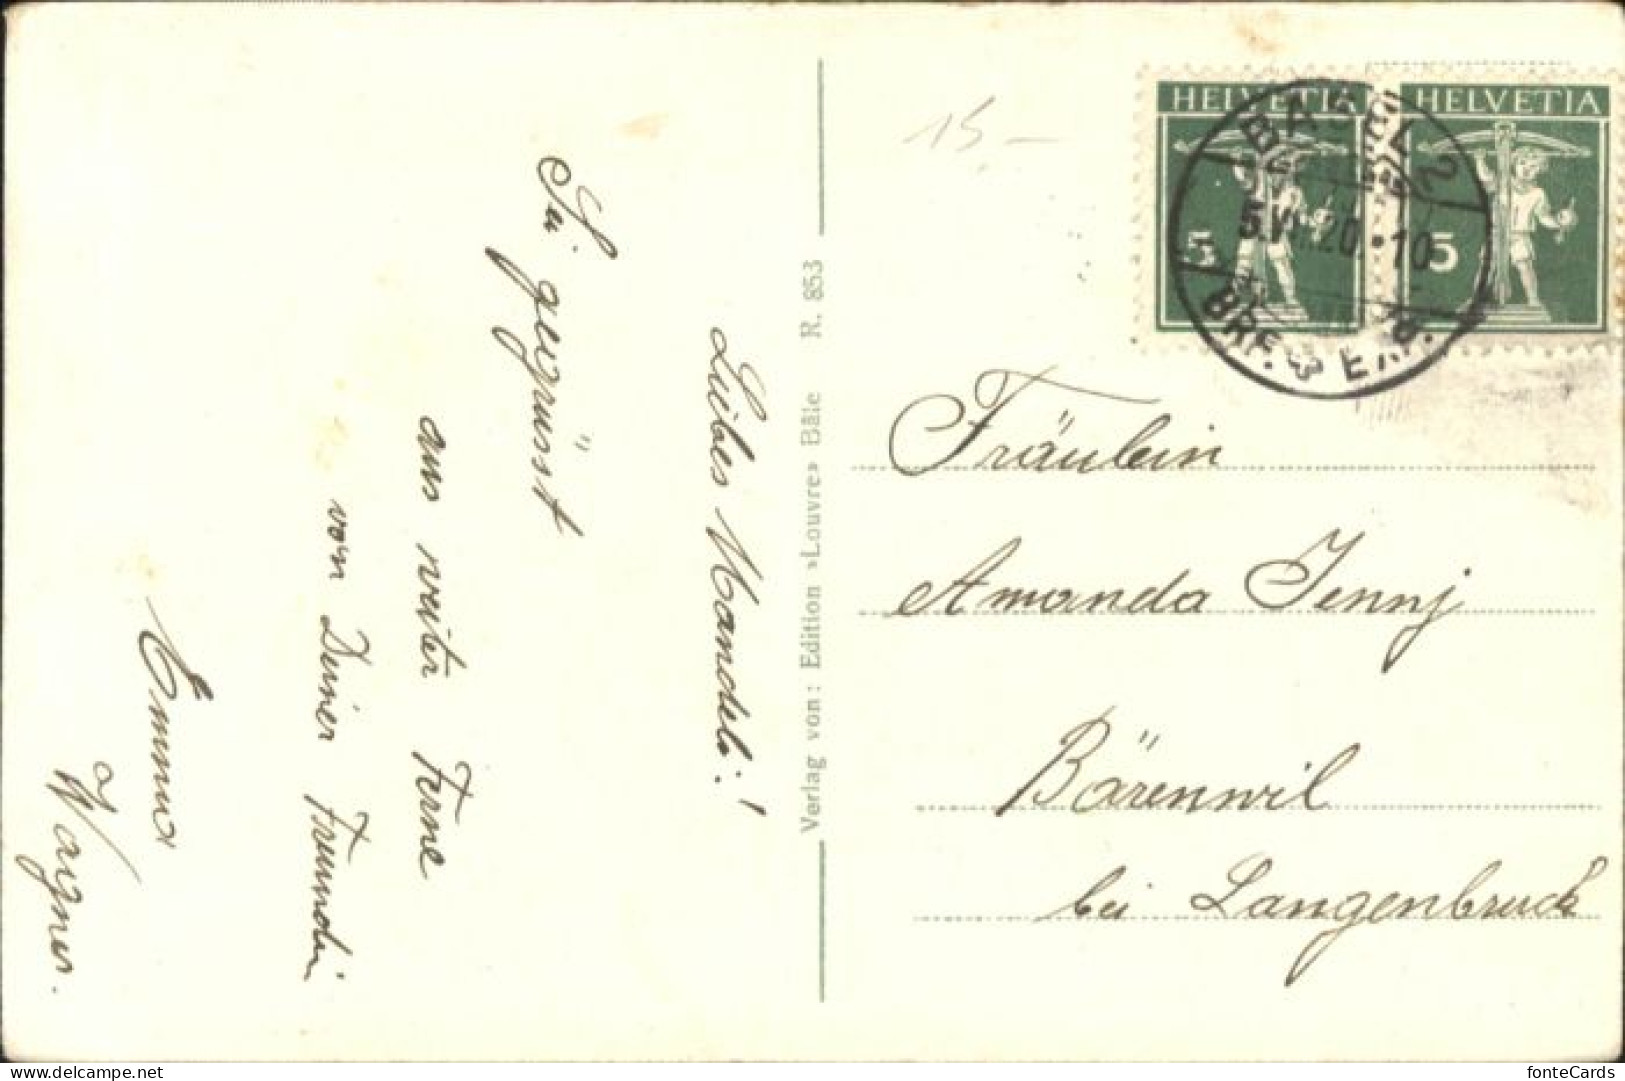 Liebes Mandeli!
Sei gegrüsst
aus weiter Ferne
von Deiner Freundin
Emma
Wagner.
Verlag von: Edition »Louvre» Bâle R. 853
15.-
HELVETIA
5
HELVETIA
5
BASEL 2
5.VII.20.•10
BRF. EXP.
Fräulein
Amanda Jennj
Bärenwil
bei Langenbruck
fonteCards
www.delcampe.net